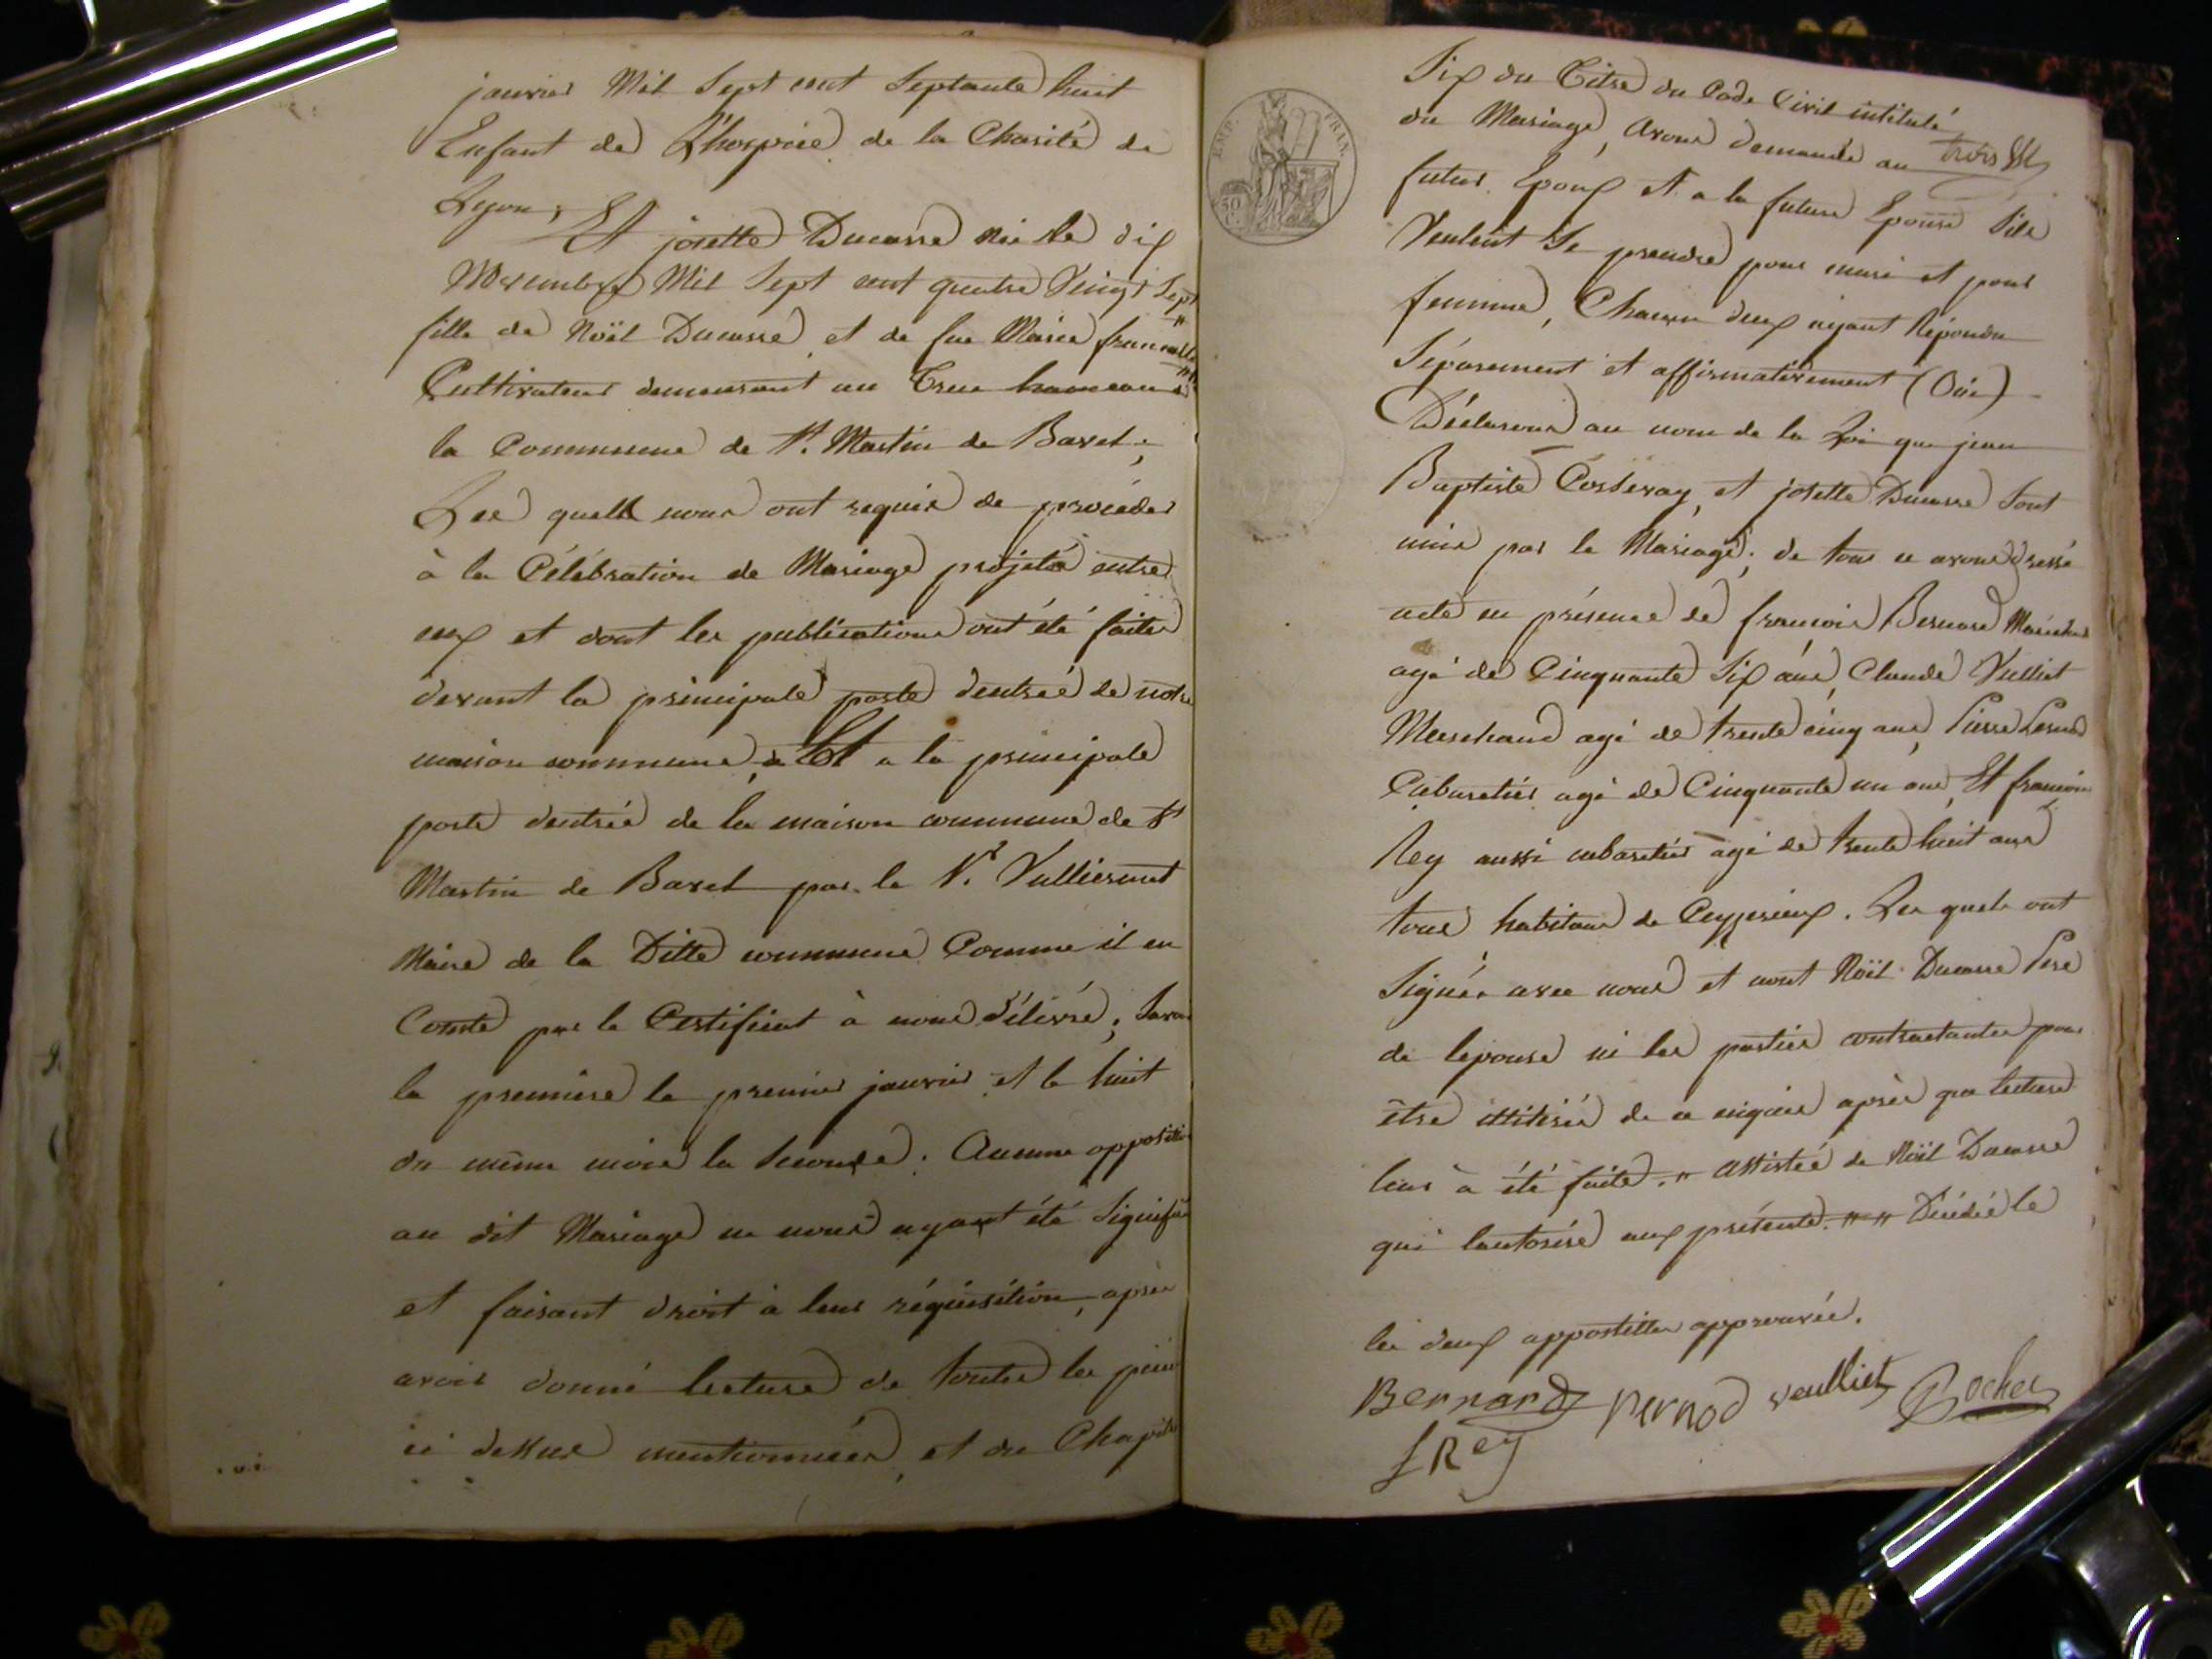 janvier Mil Sept cent Septante huit
Enfant de L'hospice de la Charité de
Lyon, Et josette Ducarre née le dix
Novembre Mil Sept cent quatre Vingt Sept
fille de Noël Ducarre et de feue Marie
Cultivateur demeurant au Creux hameau de
la Commune de St. Martin de Bavel;
Les quells nous ont requis de procéder
à la Célébration de Mariage projeté entre
eux et dont les publications ont été faites
devant la principale porte dentrée de notre
maison commune, Et a la principale
porte dentrée de la maison commune de St
Martin de Bavel par le Sr. Vulliermet
Maire de la Ditte commune Comme il en
Conste par le Certificat à nous délivré; Savoir
la première le premier janvier et le huit
du même mois la seconde. Aucune opposition
au dit Mariage ne nous ayant été Signifiée
et faisant droit à leur réquisition, après
avoir donné lecture de toutes les pièces
ci dessus mentionnées, et du Chapitre
Six du Titre du Code Civil intitulé
du Mariage, Avons demandé au
EMP. FRAN. 50 C.
futur Epoux et a la future Epouse S'ils
Veulent Se prendre pour mari et pour
femme, Chacun deux ayant Répondu
Séparement et affirmativement (Oui)
Déclarons au nom de la Loi que jean
Baptiste et josette Ducarre Sont
unis par le Mariage; de tous ce avons dressé
acte en présence de francois Bernard Maréchal
agé de Cinquante Six ans, Claude Vulliet
Marchand agé de trente cinq ans, Pierre Pernod
Cabaretier agé de Cinquante un ans, Et francois
Rey aussi cabaretier agé de trente huit ans
tous habitans de Ceyzerieux. Les quels ont
Signés avec nous et nont Noël Ducarre Pere
de lepouse ni les parties contractantes pour
être de ce enquis après que lecture
leur à été faite. " assistée de Noël Ducarre
qui lautorise aux présente. " " Décédée le
les deux appostilles approuvées.
Bernard Pernod veulliet Bochet
f Rey